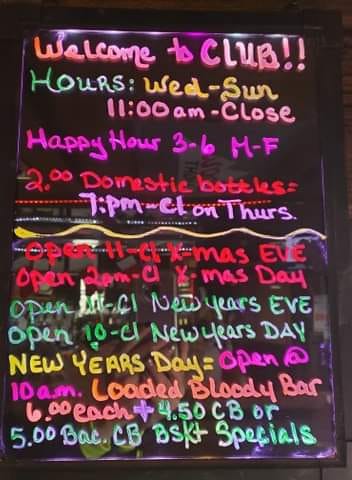 Welcome to CLUB!!
HOURS: Wed-Sun
11:00am-Close
Happy Hour 3-6 M-F
2.00 Domestic bottles=
7:pm-Cl on Thurs.
Open 11-Cl X-mas EVE
Open 2pm-Cl X-mas Day
Open 11-Cl New years EVE
Open 10-Cl New years DAY
NEW YEARS Day= Open @
10a.m. Loaded Bloody Bar
6.00 each + 4.50 CB or
5.00 Bac. CB Bskt Specials